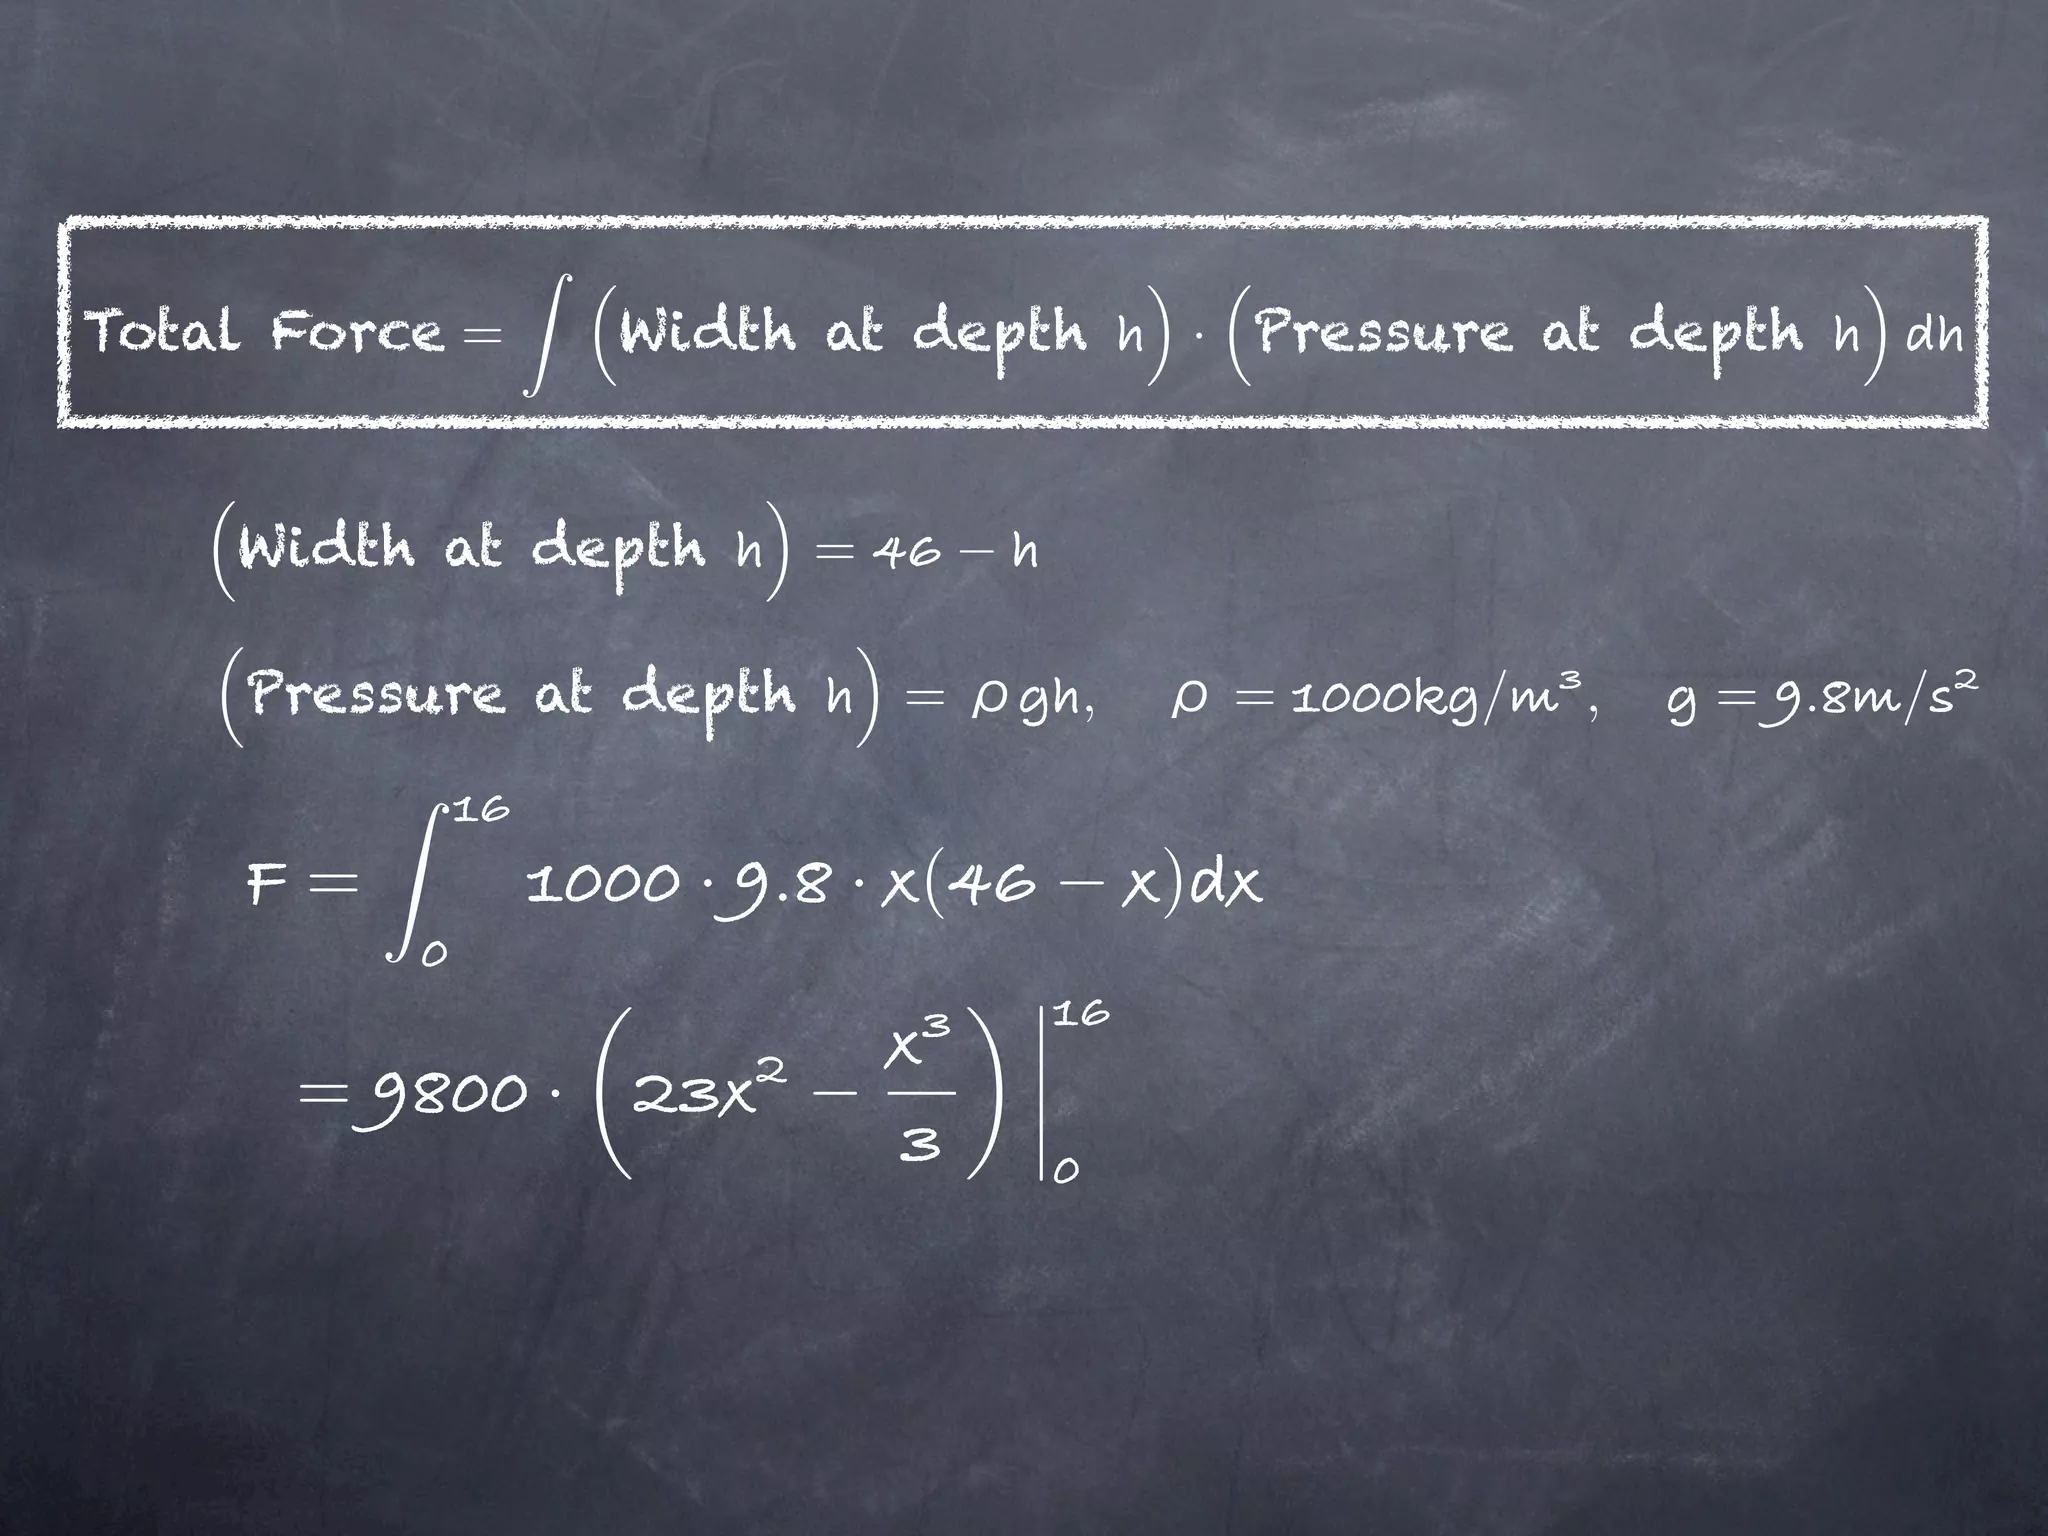 Total Force = ∫ (Width at depth h) · (Pressure at depth h) dh
(Width at depth h) = 46 − h
(Pressure at depth h) = ρgh, ρ = 1000kg/m³, g = 9.8m/s²
F = ∫₀¹⁶ 1000 · 9.8 · x(46 − x)dx
= 9800 · (23x² − x³/3) |₀¹⁶